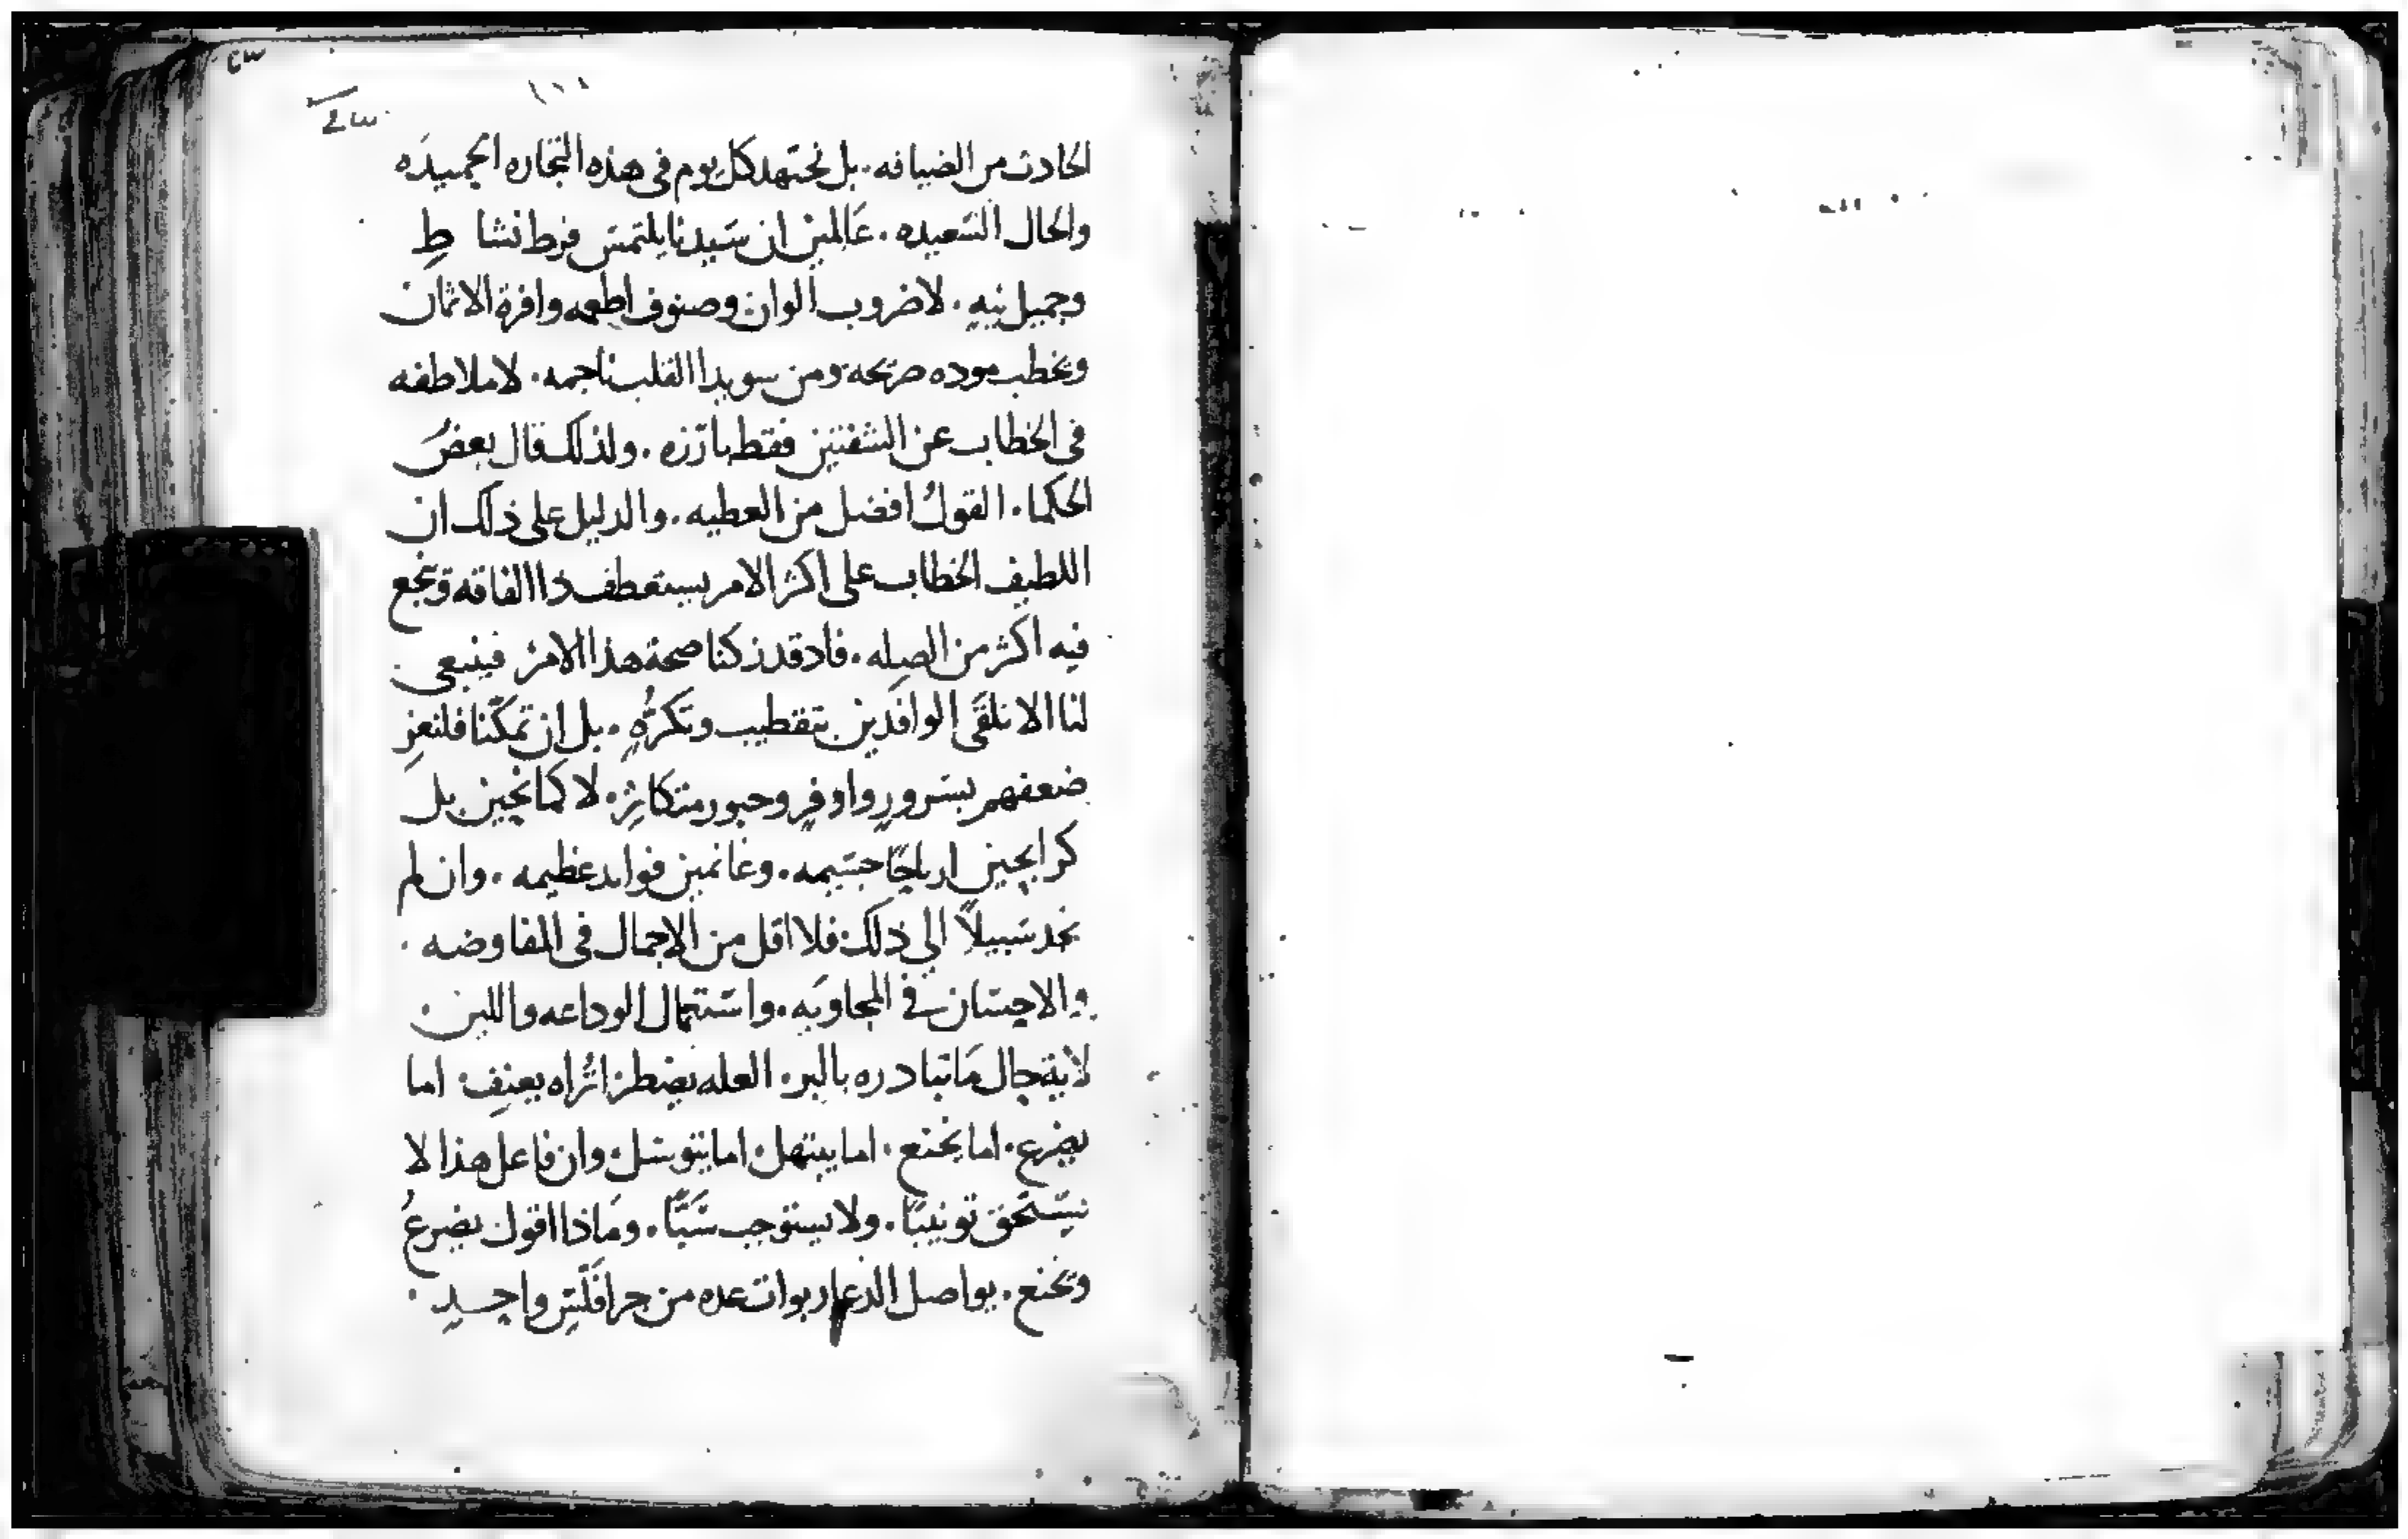 الحادث من الضيافه. بل نجتهد كل يوم فى هذه التجاره الحميده
والحال السعيده. عَالمين ان سَيدنا يلتمس فرط نشاطِ
وجميل نيهٍ. لا ضروب الوان وصنوف اطعمه وافرة الاثمان
ويخطب موده صريحه ومن سويدا القلب ناجمه. لا ملاطفه
فى الخطاب عن الشفتين فقط بارزه. ولذلك قال بعضُ
الحكما. القولُ افضل من العطيه. والدليل على ذلك ان
اللطيف الخطاب على اكثر الامر يستعطف ذا الفاقه وينجع
فيه اكثر من الصِله. فاد قد زكنا صحة هذا الامر فينبعى
لنا الا نلقَى الوافدين بتقطيب وتكرُّهٍ. بل ان تمكّنا فلنعزِ
ضعفهم بسَرورٍ وافرٍ وحبور متكاثرٍ. لا كمانحين بل
كرابحين ارباحًا جسَيمه. وغانمين فوايد عظيمه. وان لم
نجد سَبيلاً الى ذلك. فلا اقل من الاجمال فى المفاوضه.
والاحسَان فى المجاوبَه. واسَتعمال الوداعه واللين.
لاية حال مَا تبادره بالبر. العله يضطر اثراه بعنفٍ. اما
يضرع. اما يخنع. اما يبتهل. اما يتوسَل. وان فاعل هذا لا
يسَتَحق تونيبًا. ولا يستوجب سَبًّا. ومَاذا اقول يضرعُ
ويخنع. يواصل الدعا ربوات عده من جرا فَلسَ واحدٍ.